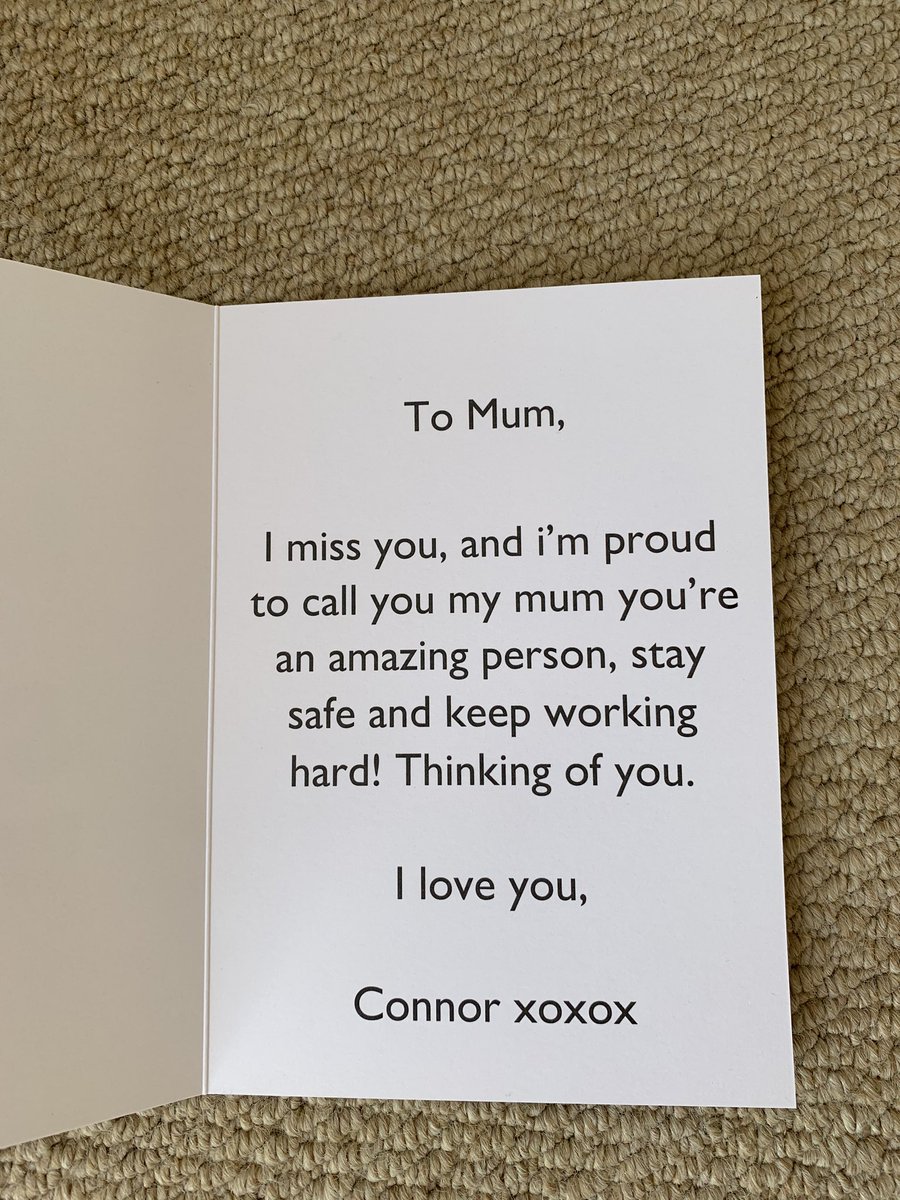 To Mum,
I miss you, and i'm proud
to call you my mum you're
an amazing person, stay
safe and keep working
hard! Thinking of you.
I love you,
Connor xoxox